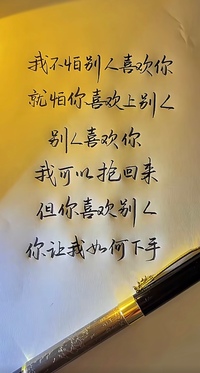 我不怕别人喜欢你
就怕你喜欢上别人
别人喜欢你
我可以抢回来
但你喜欢别人
你让我如何下手